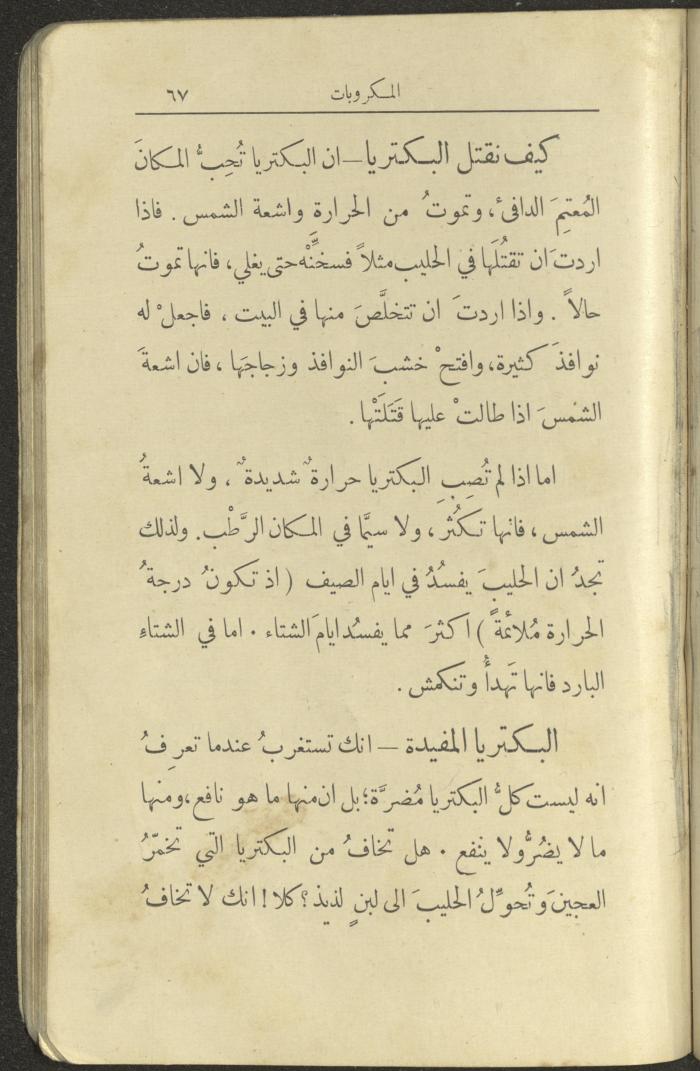 المكروبات ٦٧
كيف نقتل البكتريا — ان البكتريا تُحِبُّ المكانَ
المُعتِمَ الدافىءَ، وتموتُ من الحرارة واشعة الشمس . فاذا
اردتَ ان تقتُلَها في الحليب مثلاً فسخِّنْه حتى يغلي، فانها تموتُ
حالاً . واذا اردتَ ان تتخلَّصَ منها في البيت ، فاجعلْ له
نوافذَ كثيرة، وافتحْ خشبَ النوافذ وزجاجَها ، فان اشعةَ
الشمسَ اذا طالتْ عليها قَتَلَتْها .
اما اذا لم تُصِبِ البكتريا حرارةٌ شديدةٌ ، ولا اشعةُ
الشمس ، فانها تكثُر ، ولا سيَّما في المكان الرَّطْب. ولذلك
تجدُ ان الحليبَ يفسُدُ في ايام الصيف ( اذ تكونُ درجةُ
الحرارة مُلائمةً ) اكثرَ مما يفسُد ايامَ الشتاء . اما في الشتاءِ
البارد فانها تَهدأُ وتنكمش .
البكتريا المفيدة — انك تستغربُ عندما تعرِفُ
انه ليست كلُّ البكتريا مُضرَّة؛ بل ان منها ما هو نافع، ومنها
ما لا يضُرُّ ولا ينفع . هل تخافُ من البكتريا التي تخمّرُ
العجينَ وتُحوِّلُ الحليبَ الى لبنٍ لذيذ؟ كلا ! انك لا تخافُ